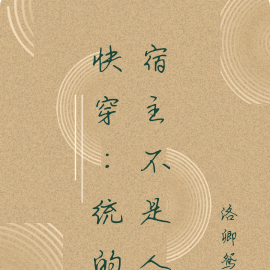 宿主不是人
快穿：统的
洛卿鸳